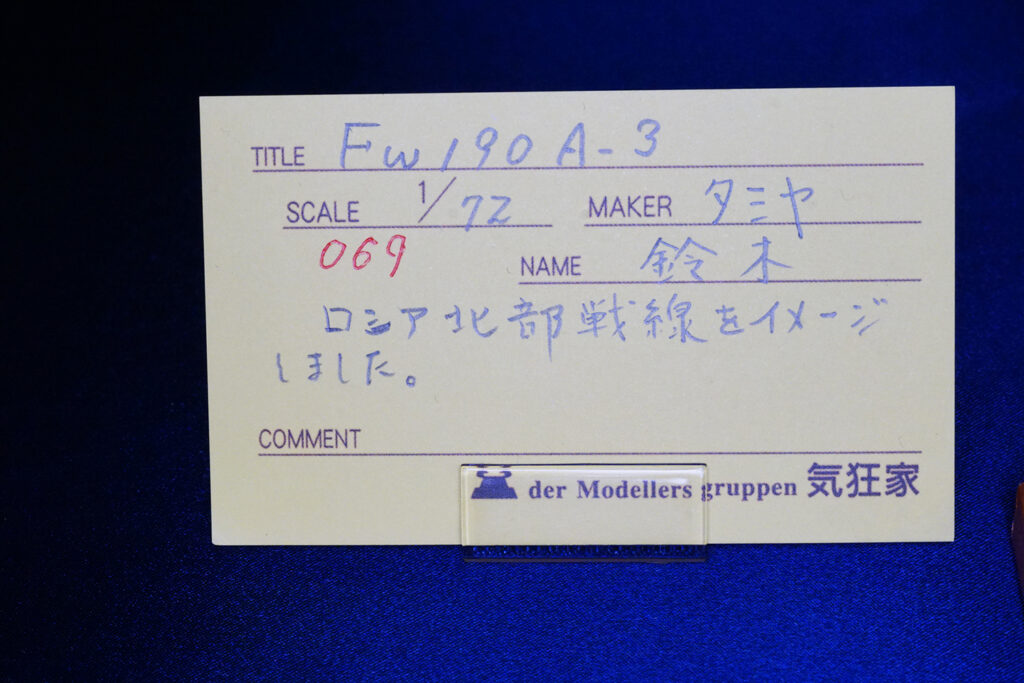 TITLE Fw190 A-3
SCALE 1/72 MAKER タミヤ
069 NAME 鈴木
ロシア北部戦線をイメージ
しました。
COMMENT
der Modellers gruppen 気狂家